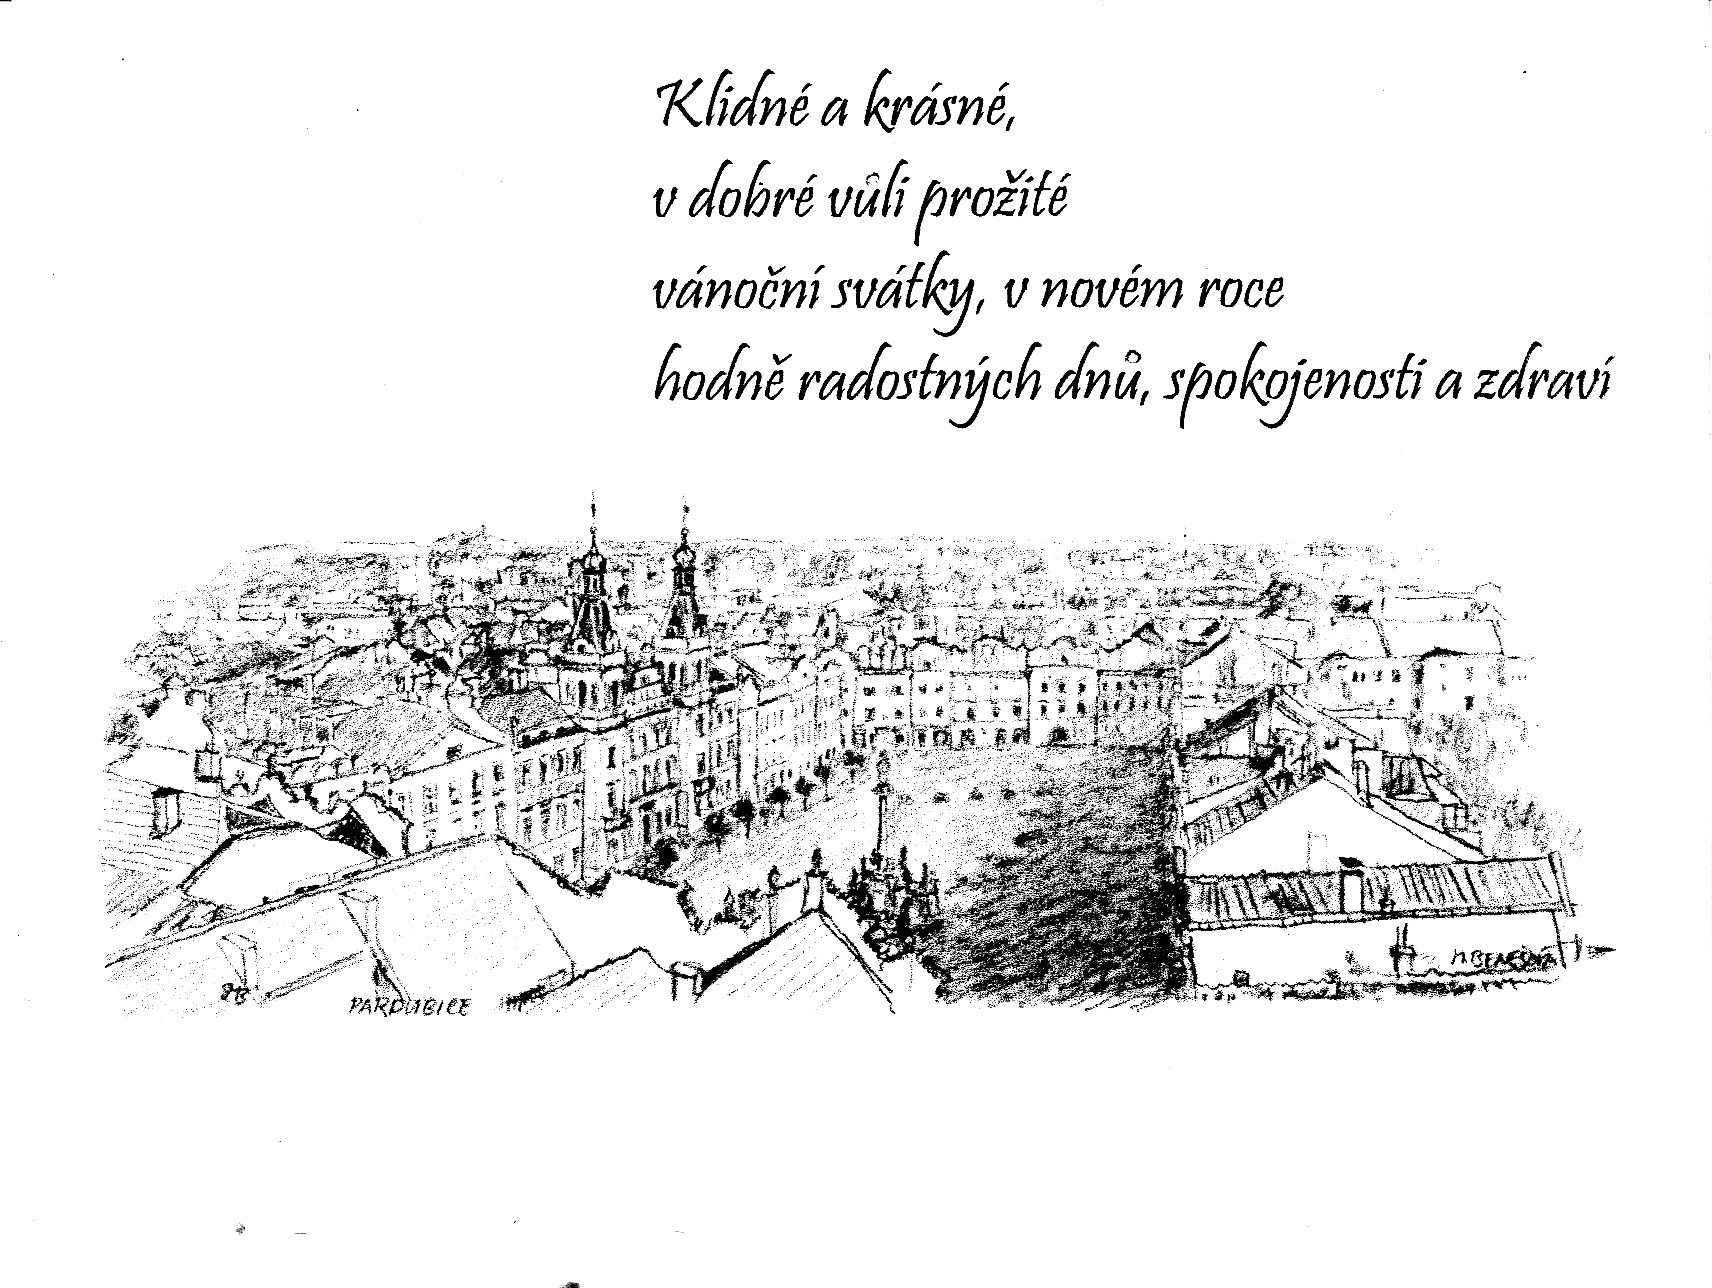 Klidné a krásné,
v dobré vůli prožité
vánoční svátky, v novém roce
hodně radostných dnů, spokojenosti a zdraví
PARDUBICE